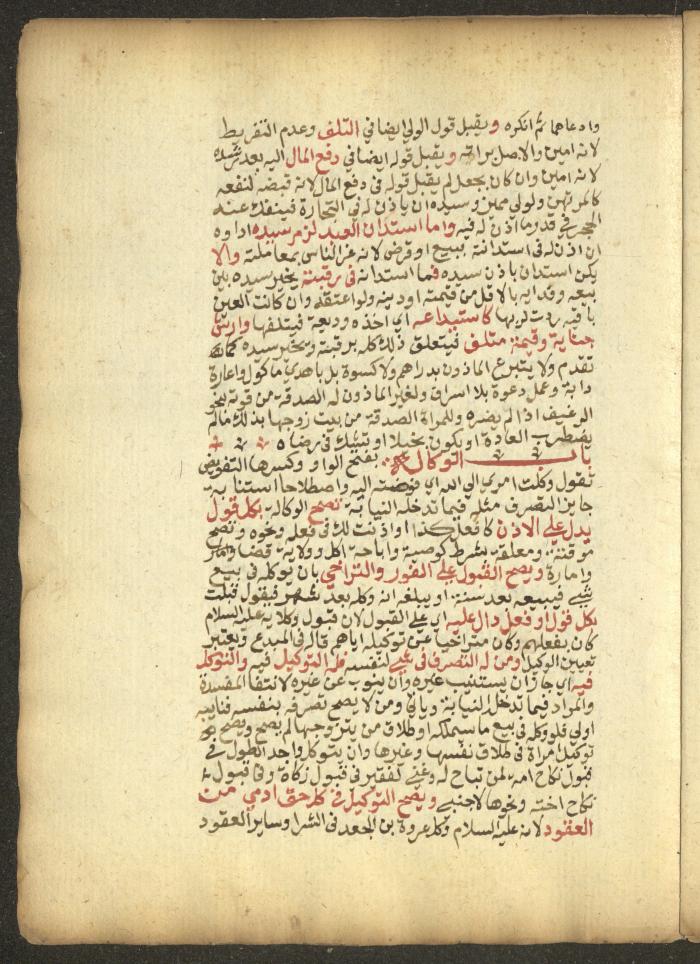 وادعاهما ثم انكره ويقبل قول الولي ايضا في التلف وعدم التفريط
لانه امين والاصل براته ويقبل قوله ايضا في دفع المال اليه بعد رشده
لانه امين وان كان بجعل لم يقبل قوله في دفع المال لانه قبضه لنفعه
كالمرتهن ولولي مميز وسيده ان ياذن له في التجارة فينفك عنه
الحجر في قدر ما اذن له فيه واما استدان العبد لزم سيده اداوه
ان اذن له في استدانته ببيع او قرض لانه غر الناس بمعاملته والا
يكن استدان باذن سيده فما استدانه في رقبته يخير سيده بين
بيعه وفدايه بالاقل من قيمته او دينه ولو اعتقه وان كانت العين
باقيه ردت لربها كاستيداعه اي اخذه وديعة فيتلفها وارش
جناية وقيمة متلف فيتعلق ذلك كله برقبته ويخير سيده كما
تقدم ولا يتبرع الماذون بدراهم ولا كسوة بل باهدي ماكول واعارة
دابة وعمل دعوة بلا اسراف ولغير الماذون له الصدقة من قوته بنحو
الرغيف اذا لم يضره وللمراة الصدقة من بيت زوجها بذلك مالم
يضطرب العادة او يكون بخيلا او تشك في رضاه
باب الوكالة بفتح الواو وكسرها التفويض
تقول وكلت امري الي الله اي فوضته اليه واصطلاحا استنابة
جايز التصرف مثله فيما تدخله النيابة تصح الوكالة بكل قول
يدل علي الاذن كافعل كذا او اذنت لك في فعله ونحوه وتصح
موقتة ومعلقة بشرط كوصية واباحة اكل وولاية قضا
وامارة ويصح القبول علي الفور والتراخي بان يوكله في بيع
شي فيبيعه بعد سنة او يبلغه انه وكله بعد شهر فيقول قبلت
بكل قول او فعل دال عليه اي علي القبول لان قبول وكلايه عليه السلام
كان بفعلهم وكان متراخيا عن توكيله اياهم قال في المبدع ويعتبر
تعيين الوكيل ومن له التصرف في شي لنفسه فله التوكيل فيه والتوكل
فيه اي جاز ان يستنيب غيره وان ينوب عن غيره لانتفا المفسدة
والمراد فيما تدخله النيابة وياتي ومن لا يصح تصرفه بنفسه فنايبه
اولي فلو وكله في بيع ما سيملكه او طلاق من يتزوجها لم يصح ويصح
توكيل امراة في طلاق نفسها وغيرها وان يتوكل واجد الطول في
قبول نكاح امة لمن تباح له وغني لفقير في قبول زكاة وفي قبول
نكاح اخته ونحوها لاجنبي ويصح التوكيل في كل حق ادمي من
العقود لانه عليه السلام وكل عروة بن الجعد في الشرا وساير العقود